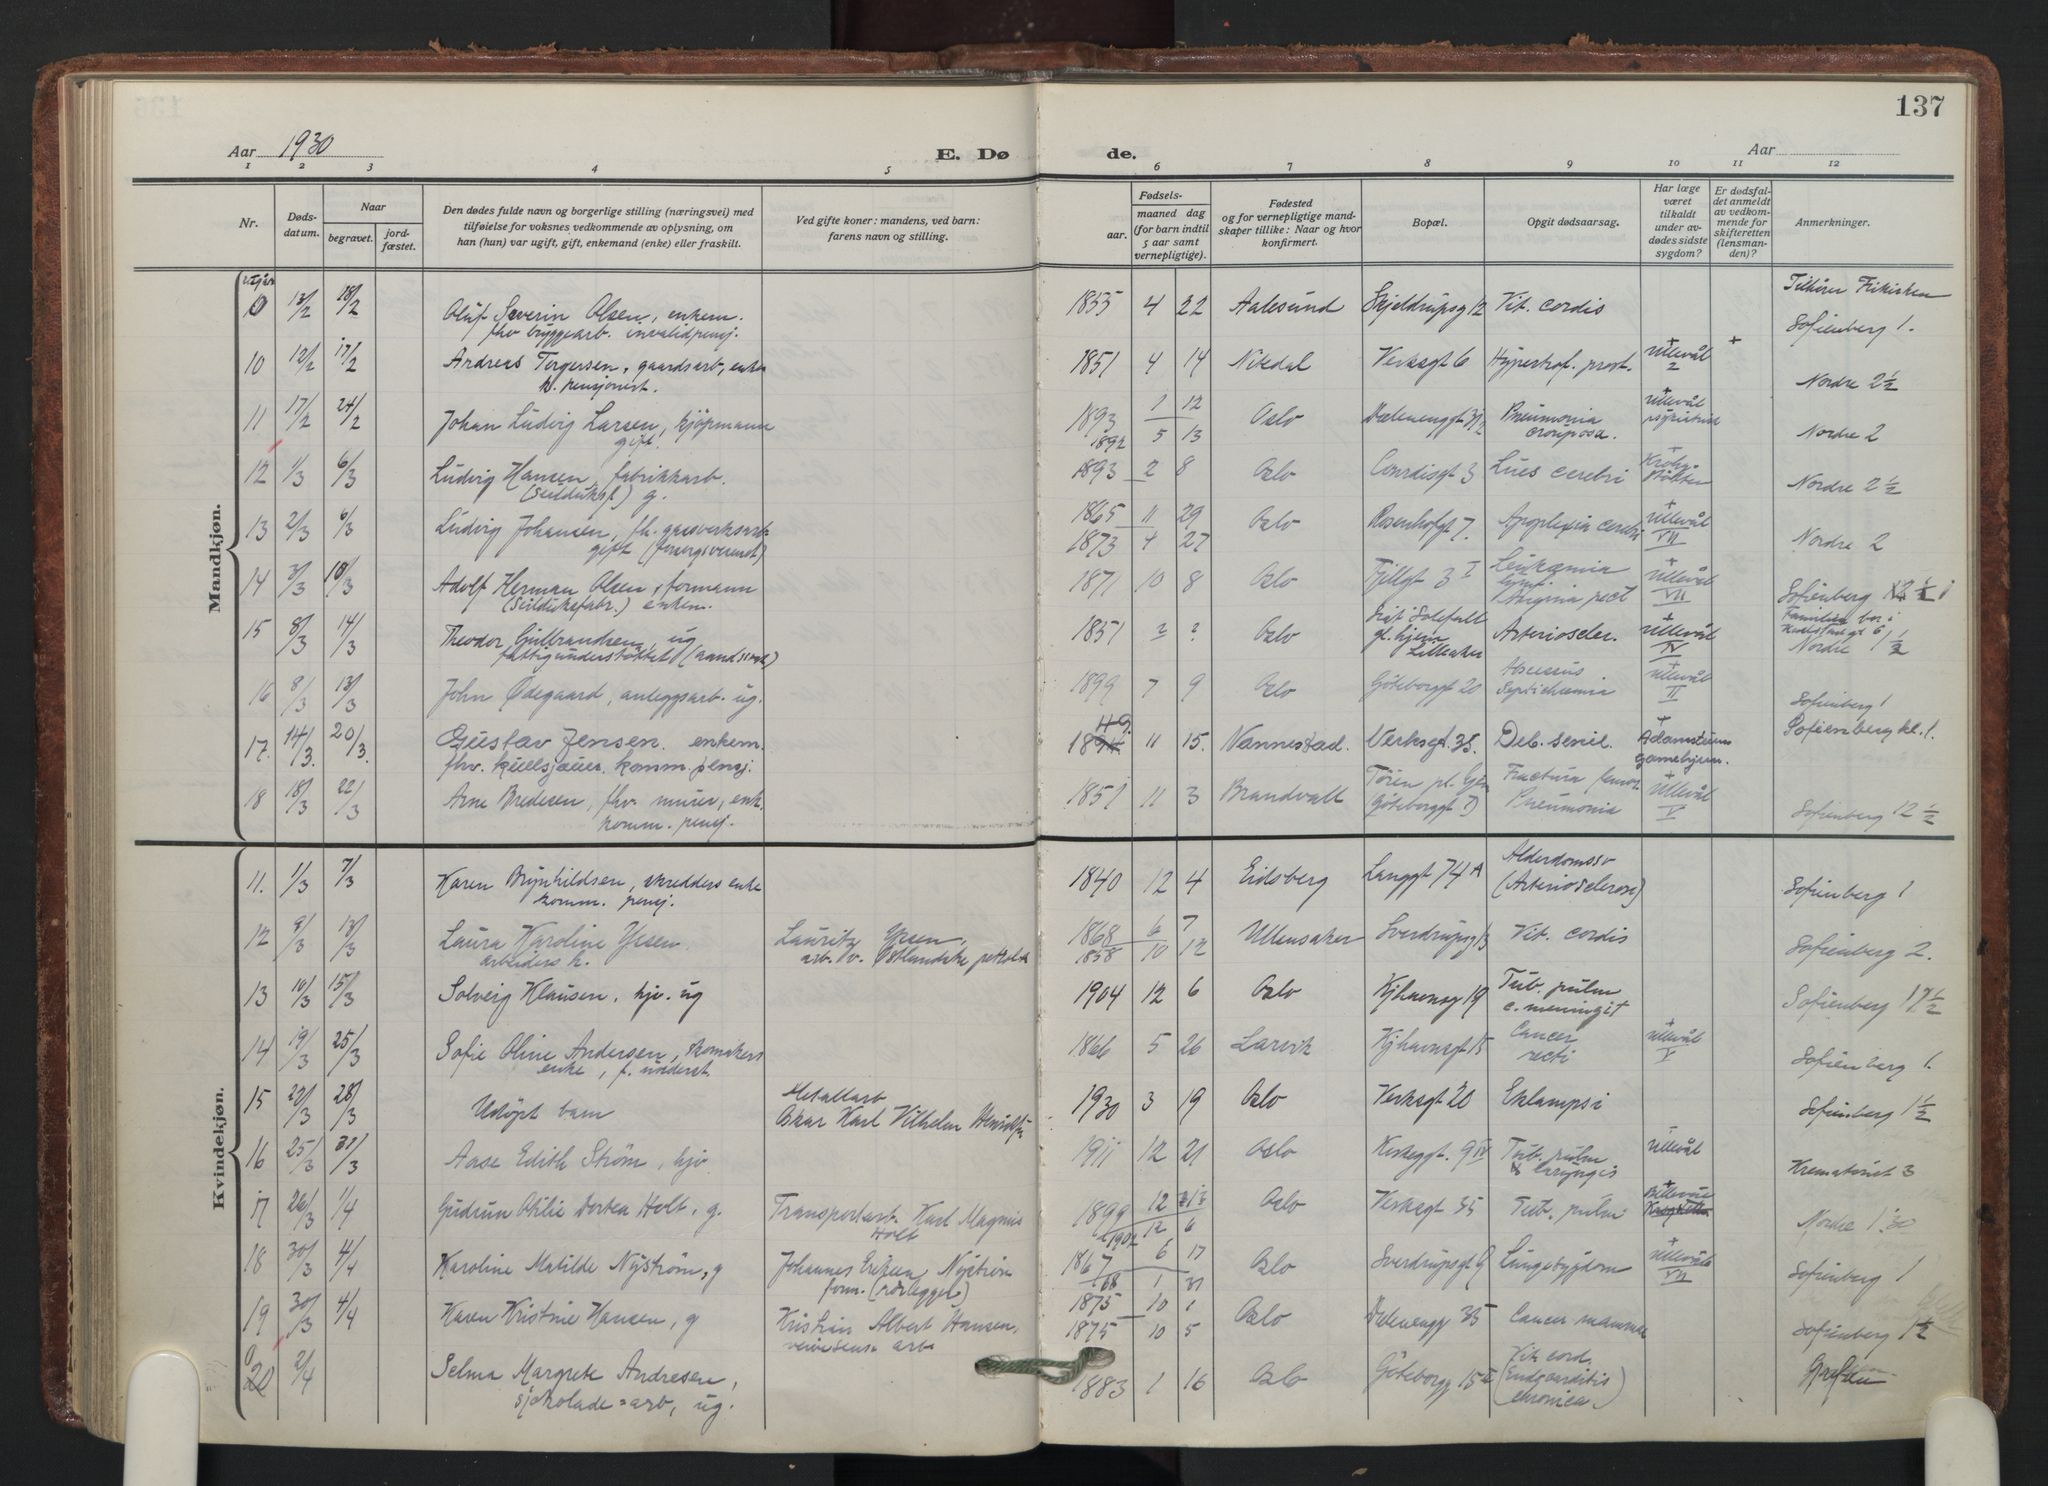 137
Aar 1930 E. Dø de. Aar
1 2 3 4 5 6 7 8 9 10 11 12
Nr. Døds-datum. Naar begravet. jord-fæstet. Den dødes fulde navn og borgerlige stilling (næringsvei) med tilføielse for voksnes vedkommende av oplysning, om han (hun) var ugift, gift, enkemand (enke) eller fraskilt. Ved gifte koner: mandens, ved barn: farens navn og stilling. Fødsels- aar. maaned dag (for barn indtil 5 aar samt vernepligtige). Fødested og for vernepligtige mand-skaper tillike: Naar og hvor konfirmert. Bopæl. Opgit dødsaarsag. Har læge været tilkaldt under av-dødes sidste sygdom? Er dødsfal-det anmeldt av vedkom-mende for skifteretten (lensman-den)? Anmerkninger.
Mandkjøn.
utgår 0 13/2 18/2 Oluf Severin Olsen, enkem. 1855 4 22 Aalesund Skjeldrupsg 12 Vit. cordis Tilhører Frikirken
fhv bryggearb. invalidpensj. Sofienberg 1.
10 12/2 17/2 Andreas Torgersen, gaardsarb, enkem 1851 4 14 Nitedal Verksgt 6 Hypertrof. prost. + Ullevål 2 +
k. pensjonist. Nordre 2 1/2
11 17/2 24/2 Johan Ludvig Larsen, kjøpmann 1893 1 12 Oslo Dælenenggt Pneumonia + Ullevål
gift. 1892 5 13 crouposa. Nordre 2
12 1/3 6/3 Ludvig Hansen, fabrikkarb. 1893 2 8 Oslo Conradisgt 3 Lues cerebri
(Seildukf.) g. Nordre 2 1/2
13 2/3 6/3 Ludvig Johansen, fh. gassverksarb. 1865 11 29 Oslo Rosenhofgt 7. Apoplexia cerebri + Ullevål VII
gift (forsorgsverenet) 1873 4 27 Nordre 2
14 3/3 10/3 Adolf Herman Olsen, formann 1871 10 8 Oslo Fjellgt 3 I Leukæmia + Ullevål VII
(Seildukefabr.) enkem. lymf. Angina pect Sofienberg
15 8/3 14/3 Theodor Gulbrandsen, ug 1851 ? ? Oslo Sist Solefall Arterioscler. + Ullevål IV Familien bor i
fattigunderstøttet gl. hjem Lilleaker Nordre 1 1/2
16 8/3 13/3 John Ødegaard, anleggsarb. ug. 1899 7 9 Oslo Göteborggt 20 Abscessus Septichæmia + Ullevål II Sofienberg 1
17. 14/3. 20/3. Gustav Jensen. enkem. 18 49 11 15. Nannestad. Verksgt. 38. Deb. senil. + Adamstuens Gamlehjem. Sofienberg kl. 1.
fhv. kullsjauer. komm. pensj.
18 18/3 22/3 Arne Bredesen, fhv. murer, enk. 1851 11 3 Brandvall (Göteborggt 7) Fractura femor. + Ullevål V
komm. pensj. Pneumonia Sofienberg 12 1/2
Kvindekjøn.
11. 1/3 7/3 Karen Brynhildsen, skredders enke 1840 12 4 Eidsberg Langgt 74 A Alderdomssv
komm. pensj. (Arteriosclerose) Sofienberg 1
12 9/3 13/3 Laura Karoline Ipsen. Lauritz Ipsen, 1868 6 7 Ullensaker Sverdrupsg 13 Vit. cordis
arbeiders h. arb. v. Østlandske petrol 1858 10 12 Sofienberg 2.
13 10/3 15/3 Solveig Klausen, hjv. ug 1904 12 6 Oslo Kjhavnsg 19 Tub. pulm
c. meningit Sofienberg 1 1/2
14 19/3 25/3 Sofie Oline Andersen, skomakers 1866 5 26 Larvik Kjhavnsgt 15 Cancer + Ullevål V
enke, f. underst. recti Sofienberg 1.
15 22/3 28/3 Udöpt barn Metallarb Oskar Karl Vilhelm Henriksen 1930 3 19 Oslo Verksgt 20 Eklampsi Sofienberg 1 1/2
16 25/3 31/3 Aase Edith Strøm, hjv. 1911 12 21 Oslo Korsgt. 9 IV Tub. pulm & laryngis Ullevål Krematoriet 3
17 26/3 1/4 Gudrun Otilie Dortea Holt, g. Transportarb. Karl Magnus Holt 1899 12 Oslo Verksgt 35 Tub. pulm + Ullevål
1902 12 6 Nordre 1 30
18 30/3 4/4 Karoline Matilde Nystrøm, g Johannes Eriksen Nystrøm 1867 6 17 Oslo Sverdrupsgt 9 Lungesygdom + Ullevål VII
form. (rørlegger) 68 1 31 Sofienberg 1
19 30/3 4/4 Karen Kristine Hansen, g Kristian Albert Hansen, 1875 10 1 Oslo Dælenengg 35 Cancer mammae
arb 1875 10 5 Sofienberg 1 1/2
0 20 2/4 Selma Margrete Andresen, 1883 1 16 Oslo Göteborgg 15 II Vit. cord.
sjokolade=arb, ug. (Endocarditis chronica)